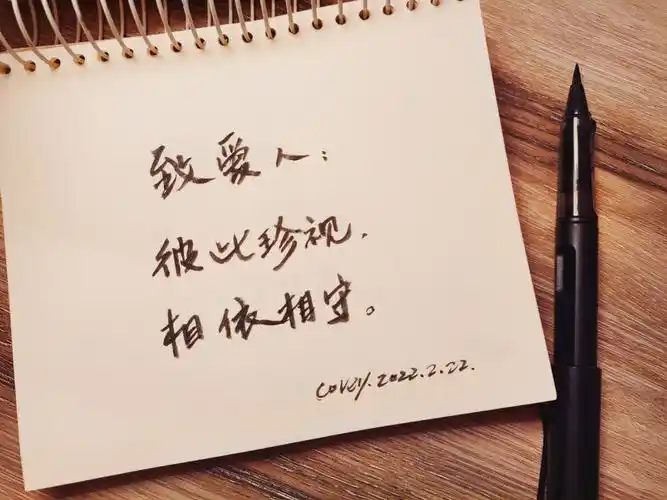 致爱人：
彼此珍视，
相依相守。
Covey.2022.2.22.